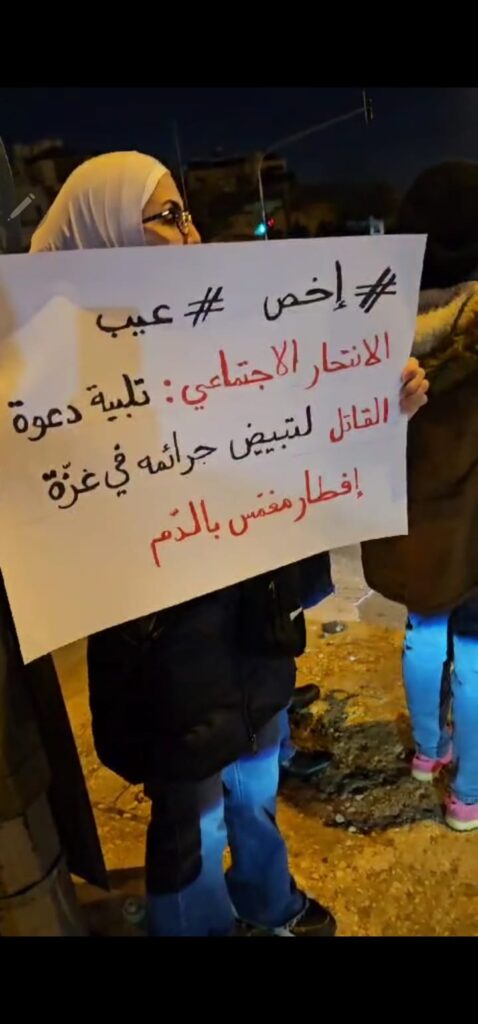 #إخص #عيب
الانتحار الاجتماعي: تلبية دعوة
القاتل لتبيض جرائمه في غزّة
إفطار مغمّس بالدّم